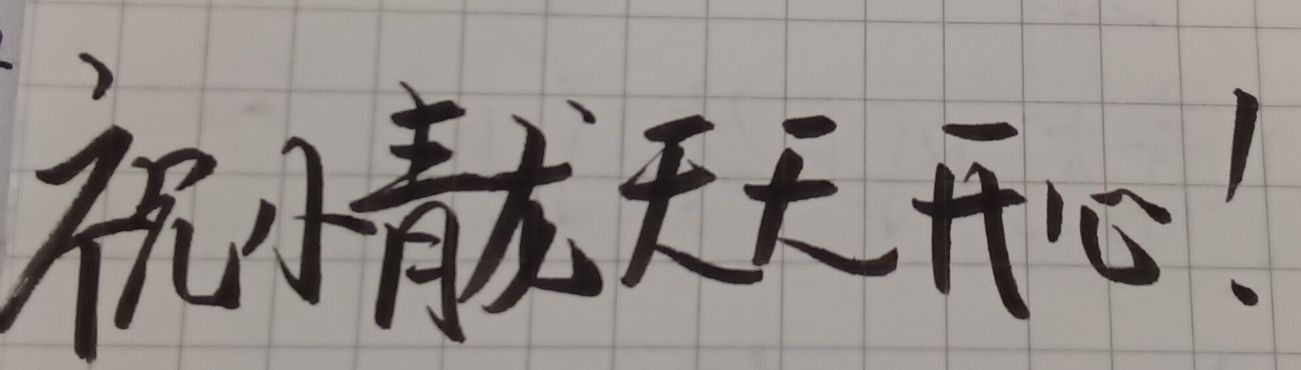 祝小青龙天天开心！